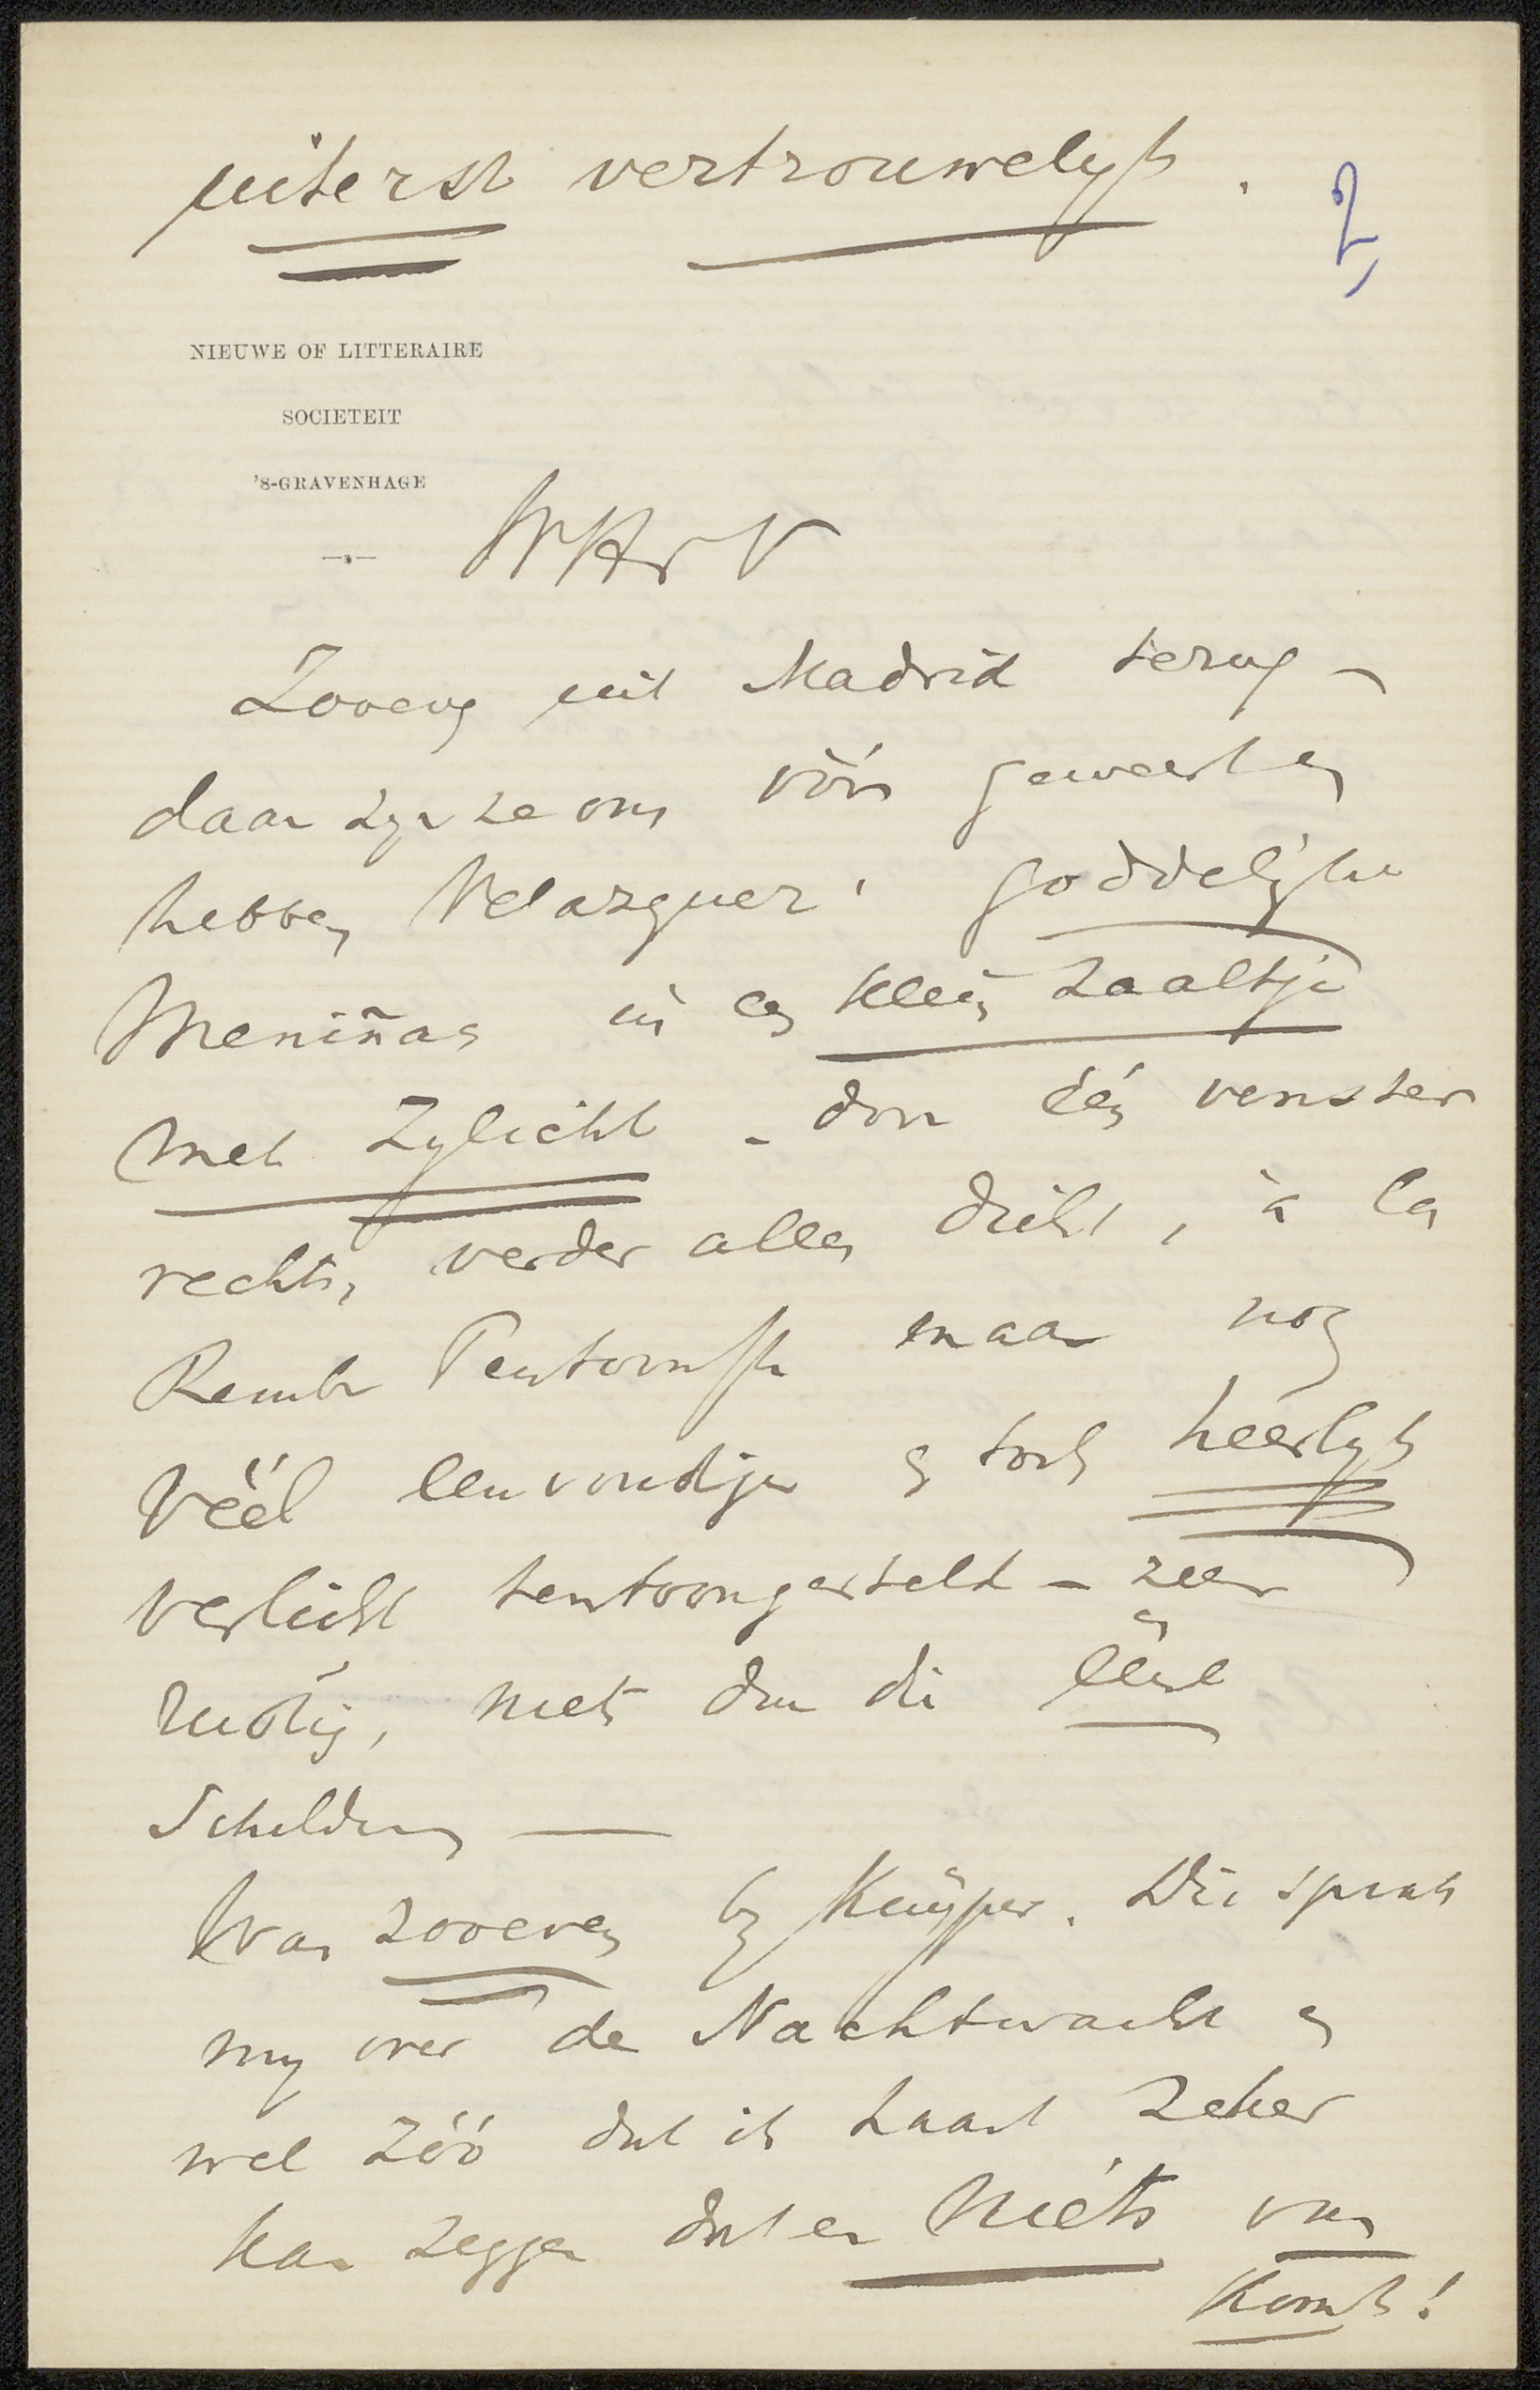 uiterst vertrouwelyk.
2,
NIEUWE OF LITTERAIRE
SOCIETEIT
'S-GRAVENHAGE
WHrV
Zooeven uit Madrid terug –
daar zyn ze ons vóór geweest en
hebben Velazquez' goddelijke
Meniñas in een klein zaaltje
met zylicht – door één venster
rechts, verder alles dicht, à la
Rembr Tentoonst maar nog
véél eenvoudiger en toch heerlyk
verlicht tentoongesteld – zeer
rustig, niets dan die ééne
Schildery —
Was zooeven by Kuyper. Die sprak
my over de Nachtwacht en
wel zóó dat ik haast zeker
kan zeggen dat er niéts van
komt!